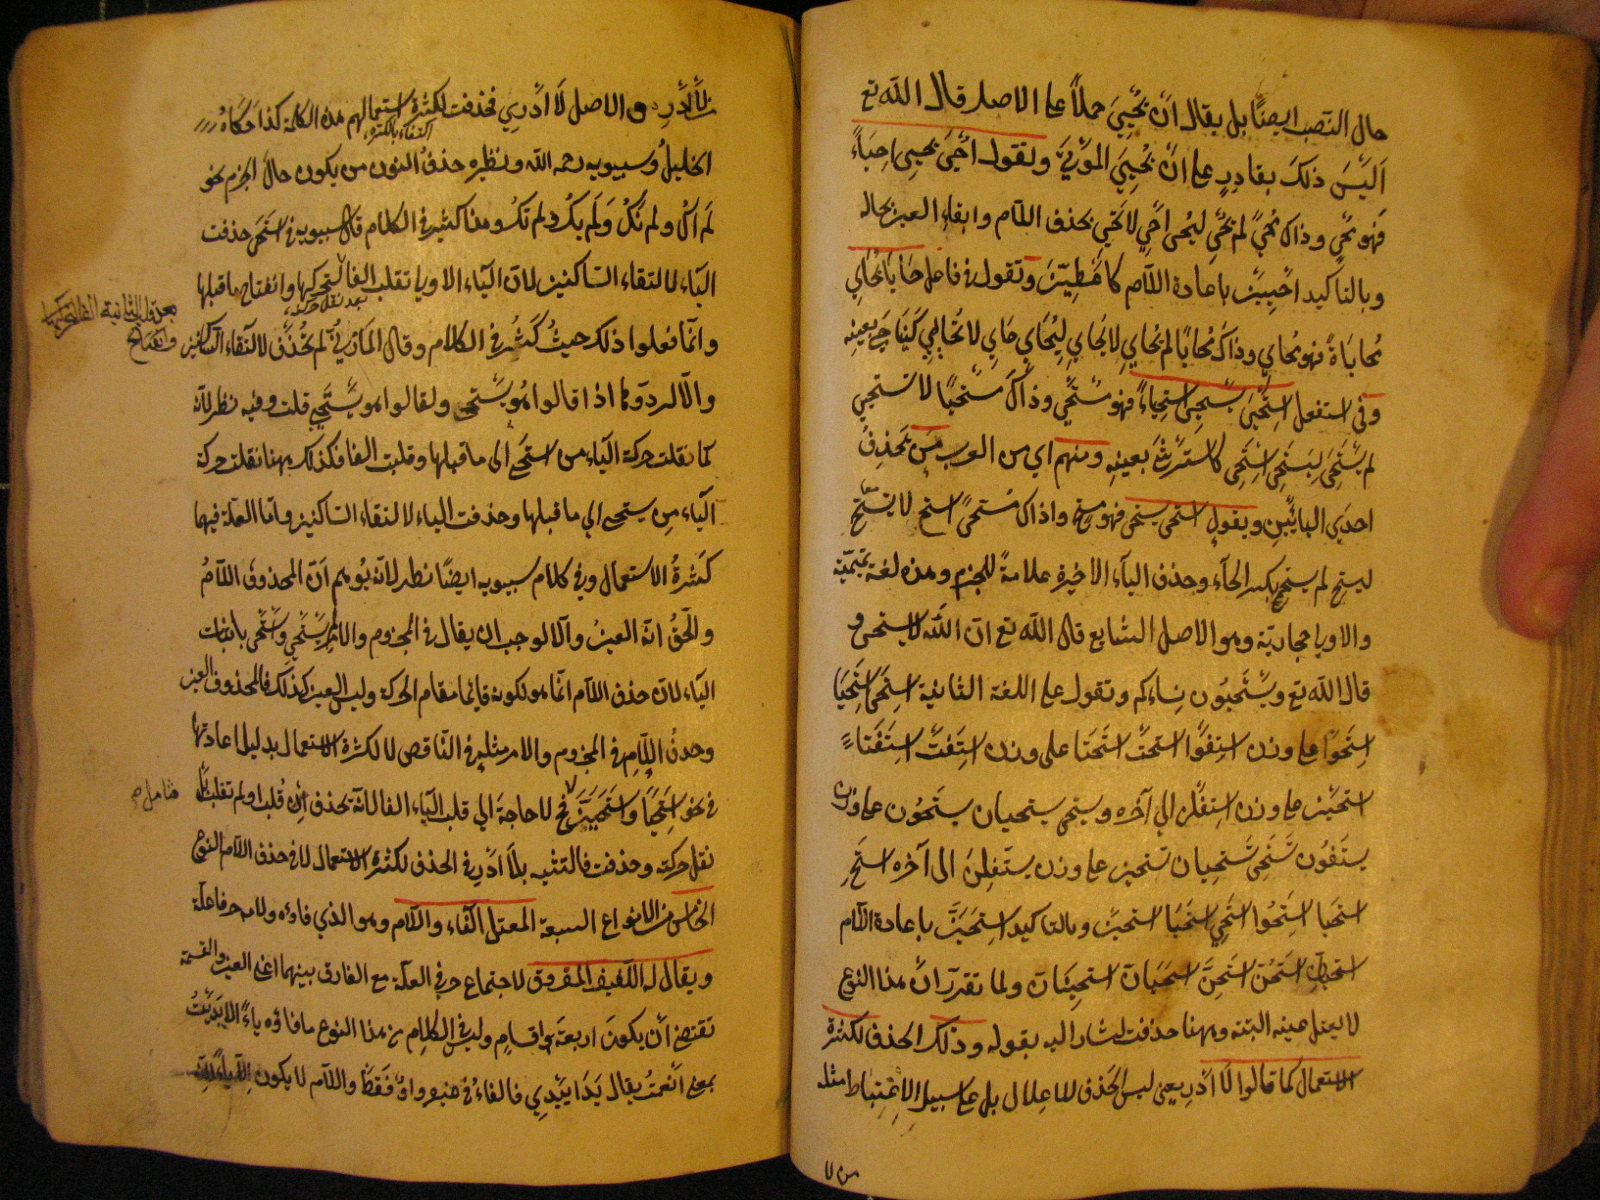 حال النصب ايضًا بل يقال اَنْ يُحْيِيَ حملاً على الاصل قال الله تع
اَلَيْسَ ذلكَ بقادِرٍ على اَنْ يُحْيِيَ الموْتَىٰ وتقول اَحْيَى يحيى احياءً
فهو مُحْيٍ وذاك مُحْيًى لم يُحْيِ ليُحْىِ اَحْىِ لا تحْىِ بحذف اللام وابقاء العين بحاله
وبالتاكيد احْيِيَنَّ باعادة اللام كاَعْطِيَنَّ وتقول فى فاعل حَايَا يُحَايِى
مُحاياةً فهو مُحايٍ وذاك مُحايًا لم يُحايِ لا يُحايِ لِيُحَايِ حَايِ لا تُحَايِ كناجَى بعينه
وفى استفعل استَحْيَى يَسْتحيى استحياءً فهو مُسْتَحْيٍ وذاكَ مُسْتَحْيًا لا تستحيى
لم يَسْتَحْىِ لِيَسْتَحْىِ اِسْتَحْىِ كاستَرْشَى بعينه ومنهم اى من العرب مَنْ يَحذِفُ
احدى اليائَيْن ويقول استحى يستحى فهو مستح وذاك مُسْتَحًى استَحِ لا يَسْتَحِ
ليستحِ لم يستحِ بكسر الحاء وحذف الياء الاخيرة علامةً للجزم وهذه لغة تميميّة
والاولى حجازيّة وهو الاصل الشايع قال الله تع انّ اللّٰه لا يستحيى و
قال الله تع ويَسْتَحيُون نساءكم وتقول على اللغة الثانية استَحَى اسْتَحَيَا
استَحَوْا على وزن استَفَوْا استحَتْ استَحَتا على وزن استَفَتْ استَفَتَا
استحَيْنَ على وزن استَفَلْنَ الى آخره ويستحى يستحيان يستَحُون على وزن
يستَفُون تَسْتَحِى تَسْتَحِيان تستحين على وزن يستَفِلْنَ الى آخره استَحِ
استحيا استَحُوا استَحِى استَحِيَا استحِينَ وبالتاكيد استَحِيَنَّ باعادة اللام
استحيانّ استَحُنَّ استَحِنَّ استَحِيَانّ استحينَانّ ولما تقرّر انّ هذا النوع
لا يعتل عينه البتة وههنا حذفت اشار اليه بقوله وذلك الحذف لكثرة
الاستعمال كما قالوا لا اَدْرِ يعنى ليس الحذف للاعلال بل على سبيل الاعتباط مثل
من لا
لا اَدْرِ والاصل لا اَدْرِي فحذفت لكثرة استعمالهم هذه الكلمة كذا حكاه
الخليلُ وسيبويه رحمه الله ونظيره حذفُ النون من يكون حالَ الجزم نحو
لم اَكُ ولم نَكُ ولم يَكُ ولم تَكُ وهذا كثير فى الكلام قال سيبويه فى استَحَى حذفت
الياء لالتقاء الساكنين لان الياء الاولى تقلب الفا لتحركها وانفتاح ما قبلها
وانّما فعلوا ذلك حيثُ كَثُر فى الكلام وقال المازنىّ لم تُحْذَفْ لالتقاء الساكنين
والّا لردّوها اذا قالوا هو يَسْتَحِى ولقالوا هو يَسْتَحْيِى قلت وفيه نظر لانّه
كما نقلت حركة الياء من استحيى الى ما قبلها وقلبت الفا فكذلك ههنا نقلت حركة
الياء من يستحيى الى ما قبلها وحذفت الياء لالتقاء الساكنين وامّا العلة فيهما
كَثرةُ الاستعمال وفى كلام سيبويه ايضًا نظر لانه يُوهم اَنّ المحذوفَ اللامُ
والحَقّ انّه العينُ والّا لوجب ان يقال فى المجزوم والامر لم يَسْتَحْىِ واسْتَحْىِ باثبات
الياء لان حذف اللام انّما هو لكونه قائما مقام الحركة وليس العين كذلك فالمحذوف العين
وحذفُ اللام فى المجزوم والامر مثله فى الناقص لا لكثرة الاستعمال بدليل اعادتها
فى نحو استَحِيَا واستَحْيِيَنَّ فح لا حاجة الى قلب الياء الفا لانّه يحذف
نقل حركته وحذفت فالتشبيه بلا اَدْرِ فى الحذف لكثرة الاستعمال لا فى حذف اللام
الخامس من الانواع السبعة المعتلّ الفاء واللام وهو الذي فاؤه ولامه حرفا علّة
ويقال له اللفيف المفروق لاجتماع حرفى العلّة مع الفارق بينهما اعنى العين والقسمة
تقتضى اَنْ يكون اربعة اقسامٍ وليس فى الكلام من هذا النوع ما فاؤه ياءً الا يَدَيْتُ
بمعنى انْعمتُ يقال يَدَا يَيْدِي فالفاءُ فى غيره واوٌ فَقَطْ واللام لا يكون